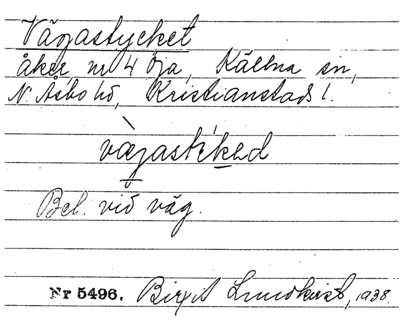 Vägastycket
åker nr 4 Öja, Källna sn,
N. Åsbo hd, Kristianstads l.
vàgastiked
Bel. vid väg.
Nr 5496. Birgit Lundkvist, 1938.